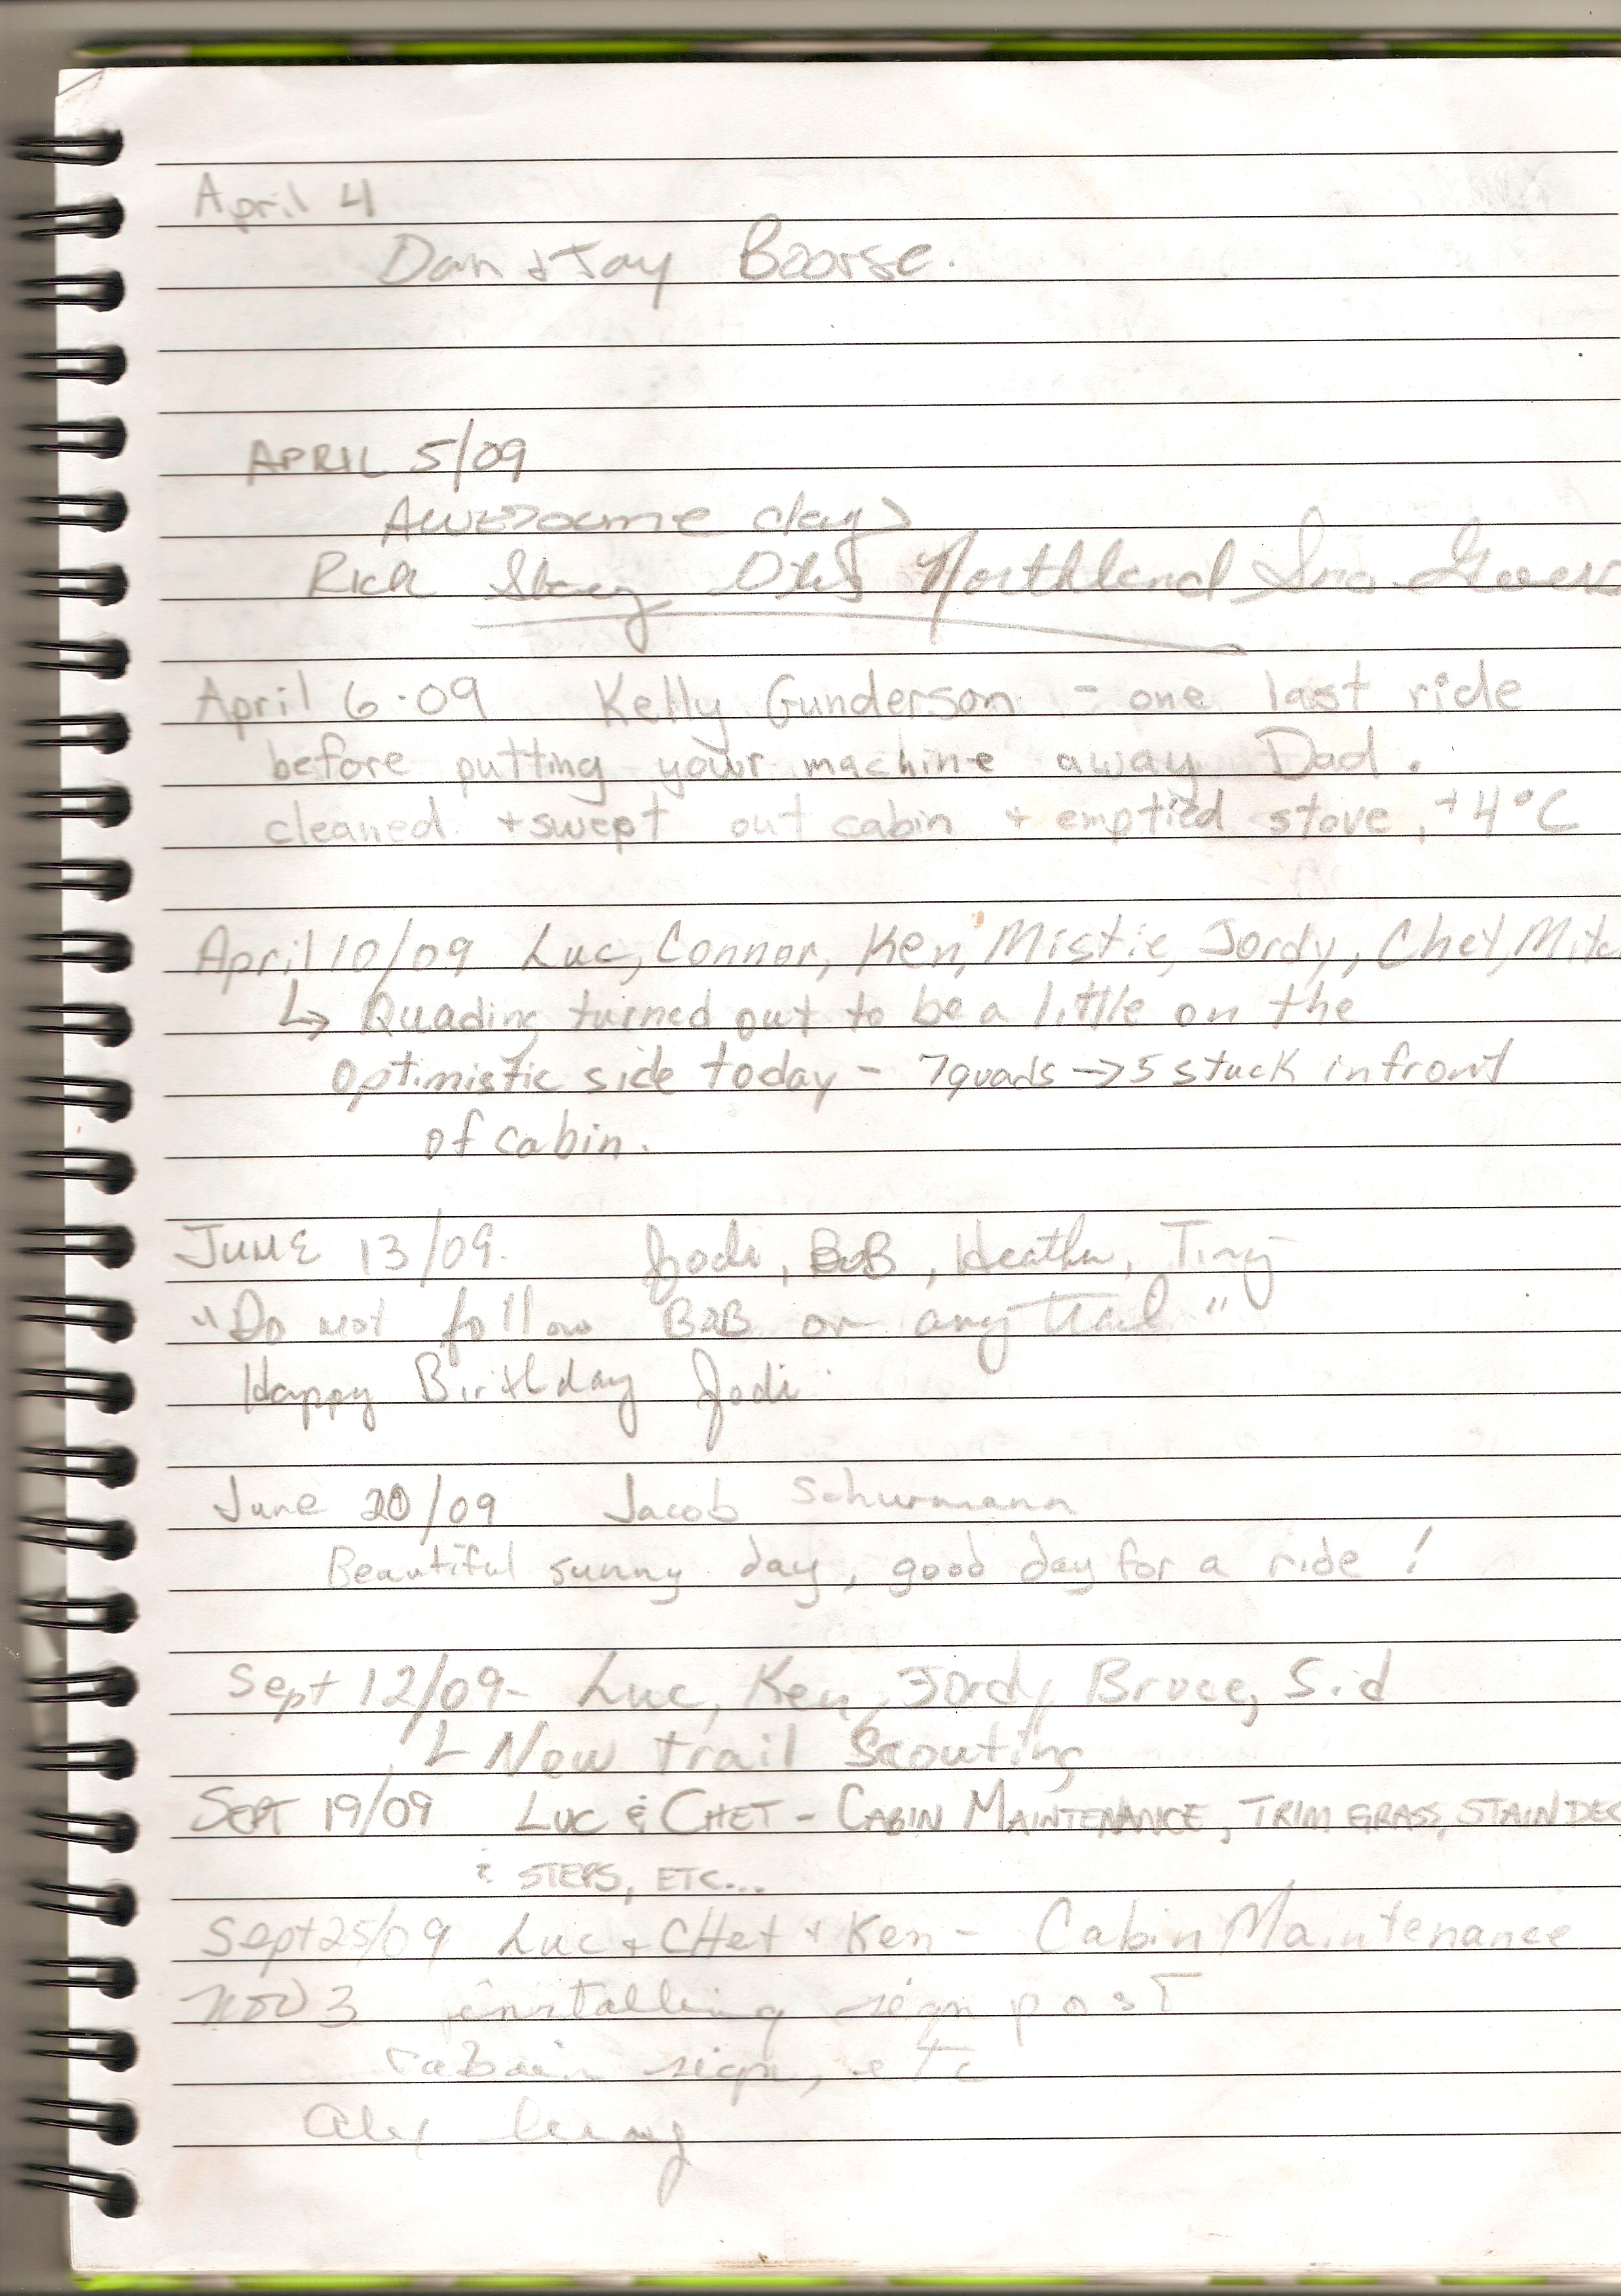 April 4
Dan & Jay Boorse.
APRIL 5/09
Awesome day
Rich Northland Sno
April 6.09 Kelly Gunderson - one last ride
before putting your machine away Dad.
cleaned + swept out cabin + emptied stove, +4°C
April 10/09 Luc, Connor, Ken, Mistie, Jordy, Chet, Mitc
↳ Quading turned out to be a little on the
optimistic side today - 7 quads → 5 stuck in front
of cabin.
JUNE 13/09. Jodi, BoB, Heather, Tiny
"Do not follow BOB on any trail"
Happy Birthday Jodi
June 20/09 Jacob Schurmann
Beautiful sunny day, good day for a ride!
Sept 12/09- Luc, Ken, Jordy, Bruce, Sid
↳ New trail Scouting
SEPT 19/09 LUC & CHET - CABIN MAINTENANCE, TRIM GRASS, STAIN DEC
& STEPS, ETC...
Sept 25/09 Luc + CHet + Ken - Cabin Maintenance
Nov 3 installing sign post
sign, etc
Alex